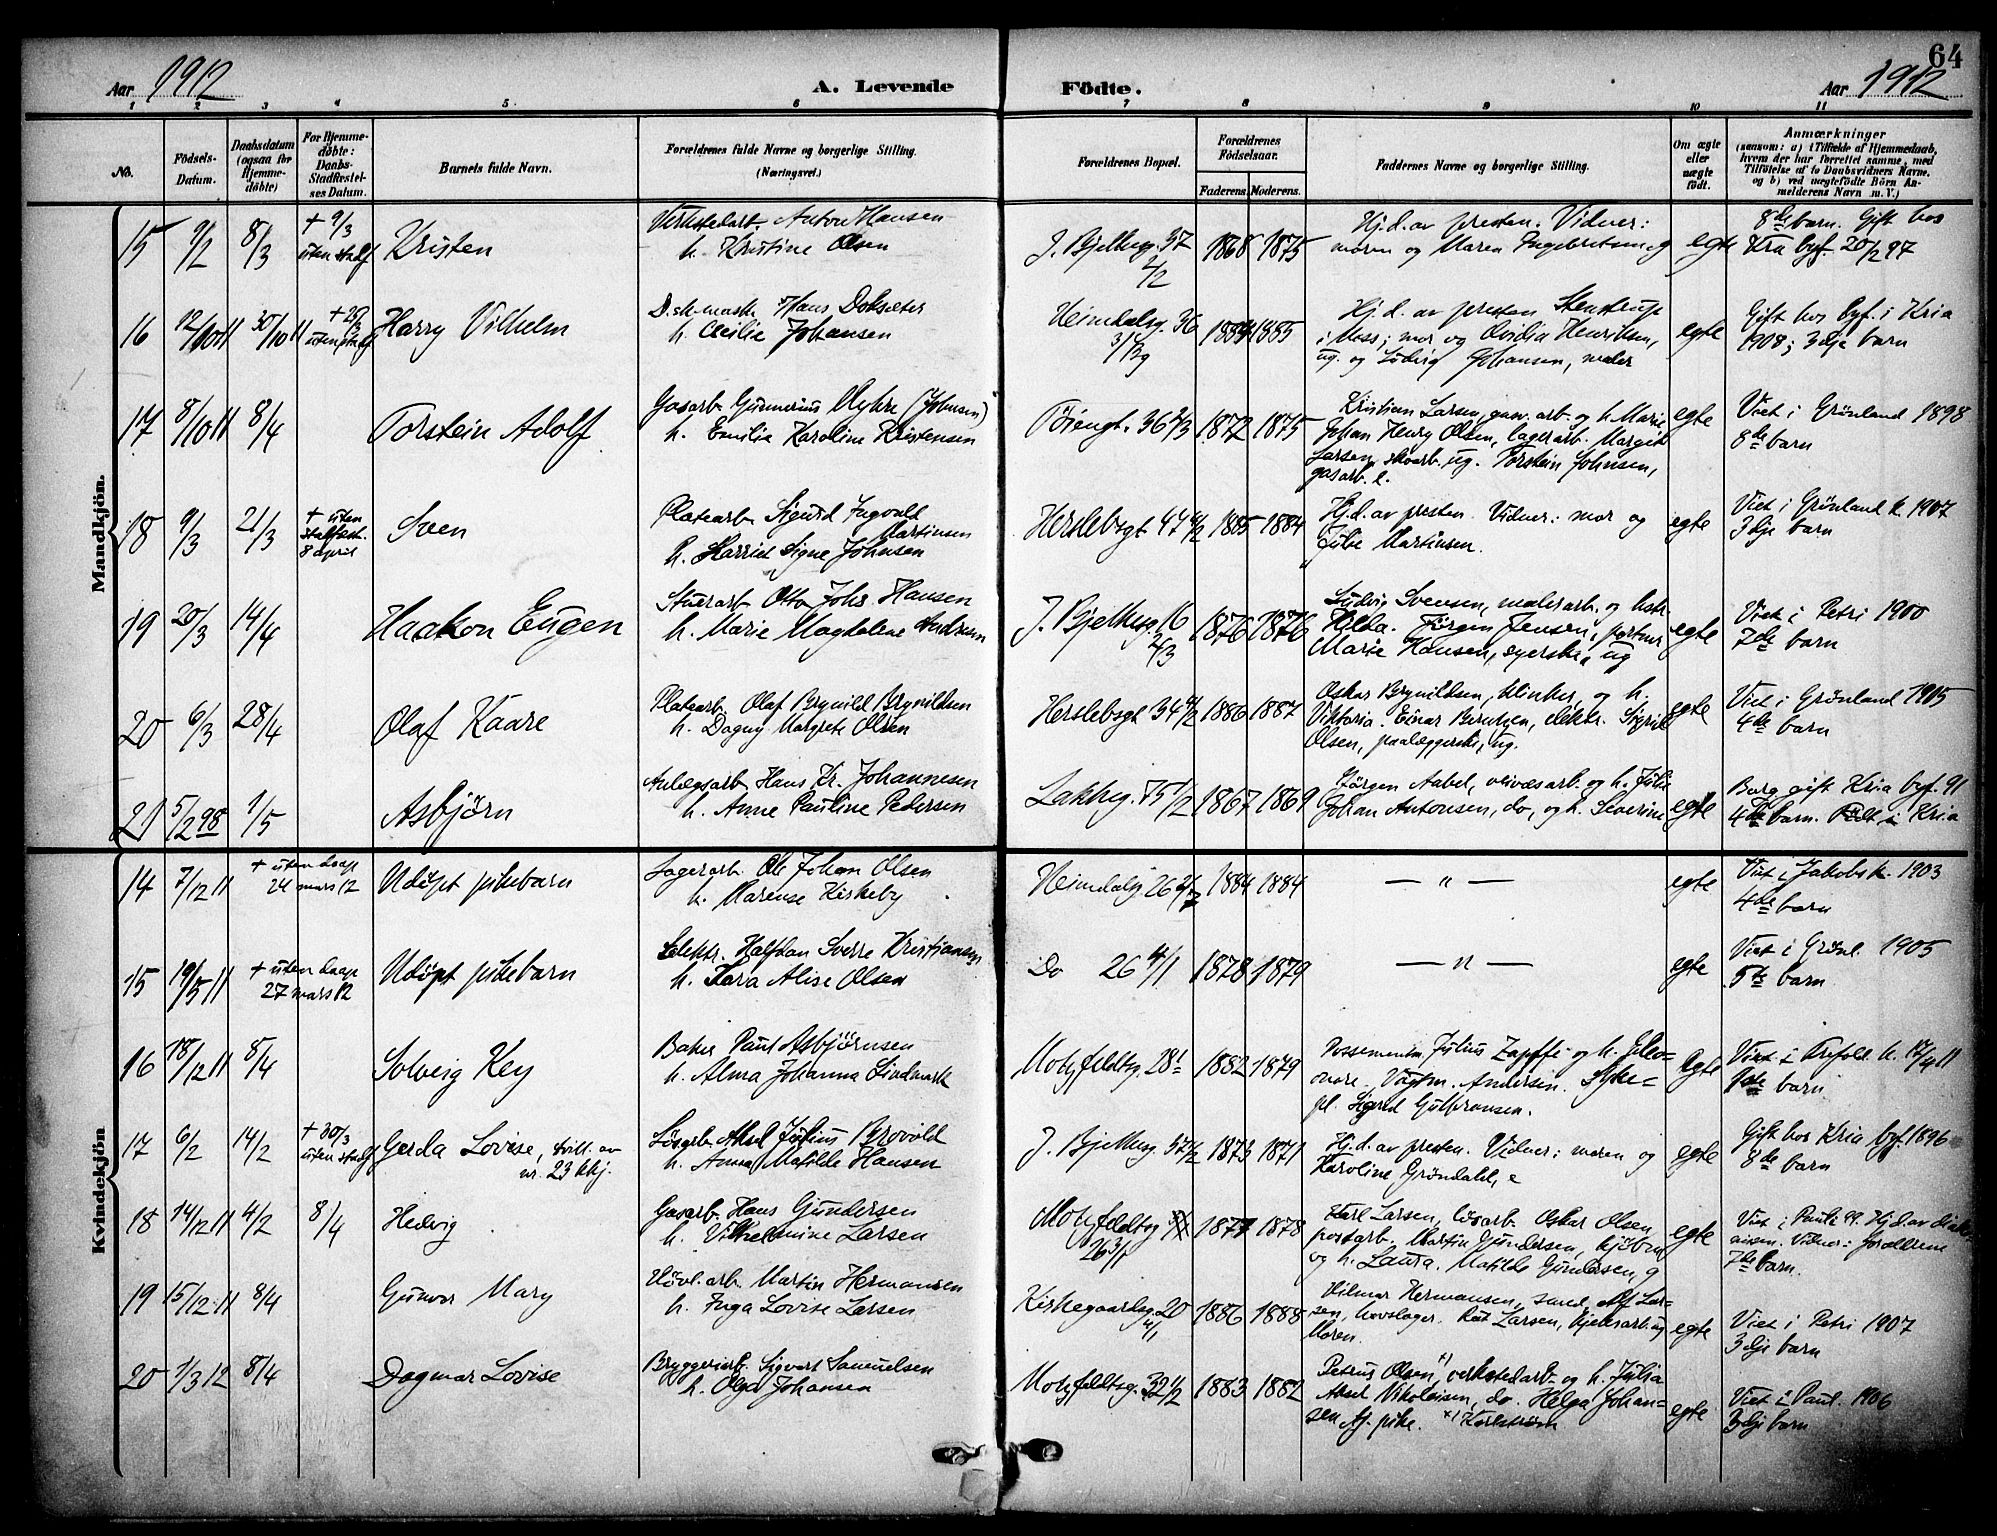 64
Aar 1912
A. Levende
Födte.
Aar 1912
1 2 3 4 5 6 7 8 9 10 11
No.
Födsels-Datum.
Daabsdatum (ogsaa for Hjemme-döbte)
For Hjemme-döbte: Daabs-Stadfæstel-ses Datum.
Barnets fulde Navn.
Forældrenes fulde Navne og borgerlige Stilling. (Næringsvei.)
Forældrenes Bopæl.
Forældrenes Födselsaar.
Faderens. Moderens.
Faddernes Navne og borgerlige Stilling.
Om ægte eller uægte födt.
Anmærkninger
(saasom: a) i Tilfælde af Hjemmedaab, hvem der har forrettet samme, med Tilföielse af to Daabsvidners Navne, og b) ved uægtefödte Börn Anmelderens Navn m. V.)
Mandkjön.
15 9/2 8/3 + 9/3 uten stadf Kristen
Verkstedarb. Anton Hansen
h. Kristine Olsen
J. Bjelkesg. 37 4/2 1868 1875
Hj.d. av presten. Vidner:
moren og Maren Engebretsen
egte
8de barn. Gift hos
Kra byf. 20/2 97
16 12/10 11 30/10 11 Harry Vilhelm
Hans Doksæter
h. Cecilie Johansen
Heimdalsg. 36 1885
Hj.d. av presten Stenstrup
i Moss; mor og Ovidia Henriksen,
ug. og Ludvig Johansen, maler
egte
Gift hos byf. i Kria
1908; 3dje barn
17 8/10 11 8/4 Torstein Adolf
Gasarb. Gunnerius Myhre (Johnsen)
h. Emilie Karoline Kristensen
Töiengt. 36 1872 1875
Kristian Larsen, gasv. arb. og h. Marie
Johan Henry Olsen, lagerarb. Margit
Larsen, skoarb. ug. Torstein Johnsen,
gasarb. e.
egte
Viet i Grönland 1898
8de barn
18 9/3 21/3 + uten stadfest. 8 april Sven
Platearb. Sigurd Ingvald Martinsen
h. Harried Signe Johnsen
Herslebsgt 47 4/2 1885 1884
Hj.d. av presten. Vidner: mor og
Julie Martinsen.
egte
Viet i Grönland k. 1907
3dje barn
19 20/3 14/4 Haakon Eugen
Stuerarb. Otto Johs. Hansen
h. Marie Magdalene Andersen
J. Bjelkesg. 16 2/3 1876 1876
Ludvig Svensen, malerarb. og hstr
Hilda. Jörgen Jensen, portner
Marie Hansen, syerske, ug
egte
Viet i Petri 1900
7de barn
20 6/3 28/4 Olaf Kaare
Platearb. Olaf Brynild Brynildsen
h. Dagny Margrete Olsen
Herslebsgt 34 4/2 1886 1887
Oskar Brynildsen, klinker, og h.
Viktoria. Einar Berntzen, elektr. Sigrid
Olsen, paalæggerske, ug.
egte
Viet i Grönland 1905
4de barn
21 5/2 98 1/5 Asbjörn
Anlegsarb. Hans Kr. Johannesen
h. Anne Pauline Pedersen
Lakkeg. 75 1/2 1867 1869
Jörgen Aabel, og h. Julie
Johan Antonsen, do, og h. Severine
egte
Borg. gift Kria byf. 91
4de barn. Födt i Kria
Kvindekjön
14 7/12 11 + uten daap 24 mars 12 Udöpt pikebarn
Lagerarb. Ole Johan Olsen
h. Marense Kirkeby
Heimdalsg 26 1884 1884
— „ —
egte
Viet i Jakobs k. 1903
4de barn
15 19/5 11 + uten daap 27 mars 12 Udöpt pikebarn
Elektr. Halfdan Sverre Kristiansen
h. Kara Alise Olsen
Do 26 4/1 1878 1879
— „ —
egte
Viet i Grönl. 1905
5te barn
16 18/12 11 8/4 Solveig Key
Baker Paul Asbjörnsen
h. Alma Johanna Lindmark
Motzfeldtsg. 28 1 1882 1879
Possementm. Julius Zapffe og h. Eleo-
nore. Vagtm. Andersen. Syke=
pl. Sigrid Gulbransen.
egte
Viet i Trefold. k. 17/4 11
1ste barn
17 6/2 14/2 + 30/3 uten stadf Gerda Lovise, tvill. av
nr. 23 kkj.
Lösarb. Aksel Julius Brovold
h. Anna Matilde Hansen
J. Bjelkesg. 57 4/2 1873 1871
Hj.d. av presten. Vidner: moren og
Karoline Gröndahl, e
egte
Gift hos Kria byf. 1896
8de barn
18 14/12 11 4/2 8/4 Hedvig
Gasarb. Hans Gundersen
h. Vilhelmine Larsen
Motzfeldtsg 26 3/1 1877 1878
Karl Larsen, lösarb. Oskar Olsen
postarb. Martin Gundersen, kjöbm
og h. Laura. Matilde Gundersen, g
egte
Viet i Pauli 99. Hj.d. av diako-
nissen. Vidner: forældrene
7de barn.
19 15/12 11 8/4 Gunvor Mary
Hövl.arb. Martin Hermansen
h. Inga Lovise Larsen
Kirkegaardsg. 20 4/1 1886 1888
Hilmar Hermansen, smed, Alf Lar-
sen, hovslager. Rut Larsen, kjeksarb. ug
Moren.
egte
Viet i Petri 1907
3dje barn
20 1/3 12 8/4 Dagmar Lovise
Bryggeriarb. Sigvart Samuelsen
h. Olga Johansen
Motzfeldtsg. 32 1/2 1883 1882
Petrus Olsen x), verkstedarb. og h. Julia
Aksel Nikolaisen, do. Helga Johan=
sen tj. pike. x) Karlström
egte
Viet i Paul. 1906
3dje barn